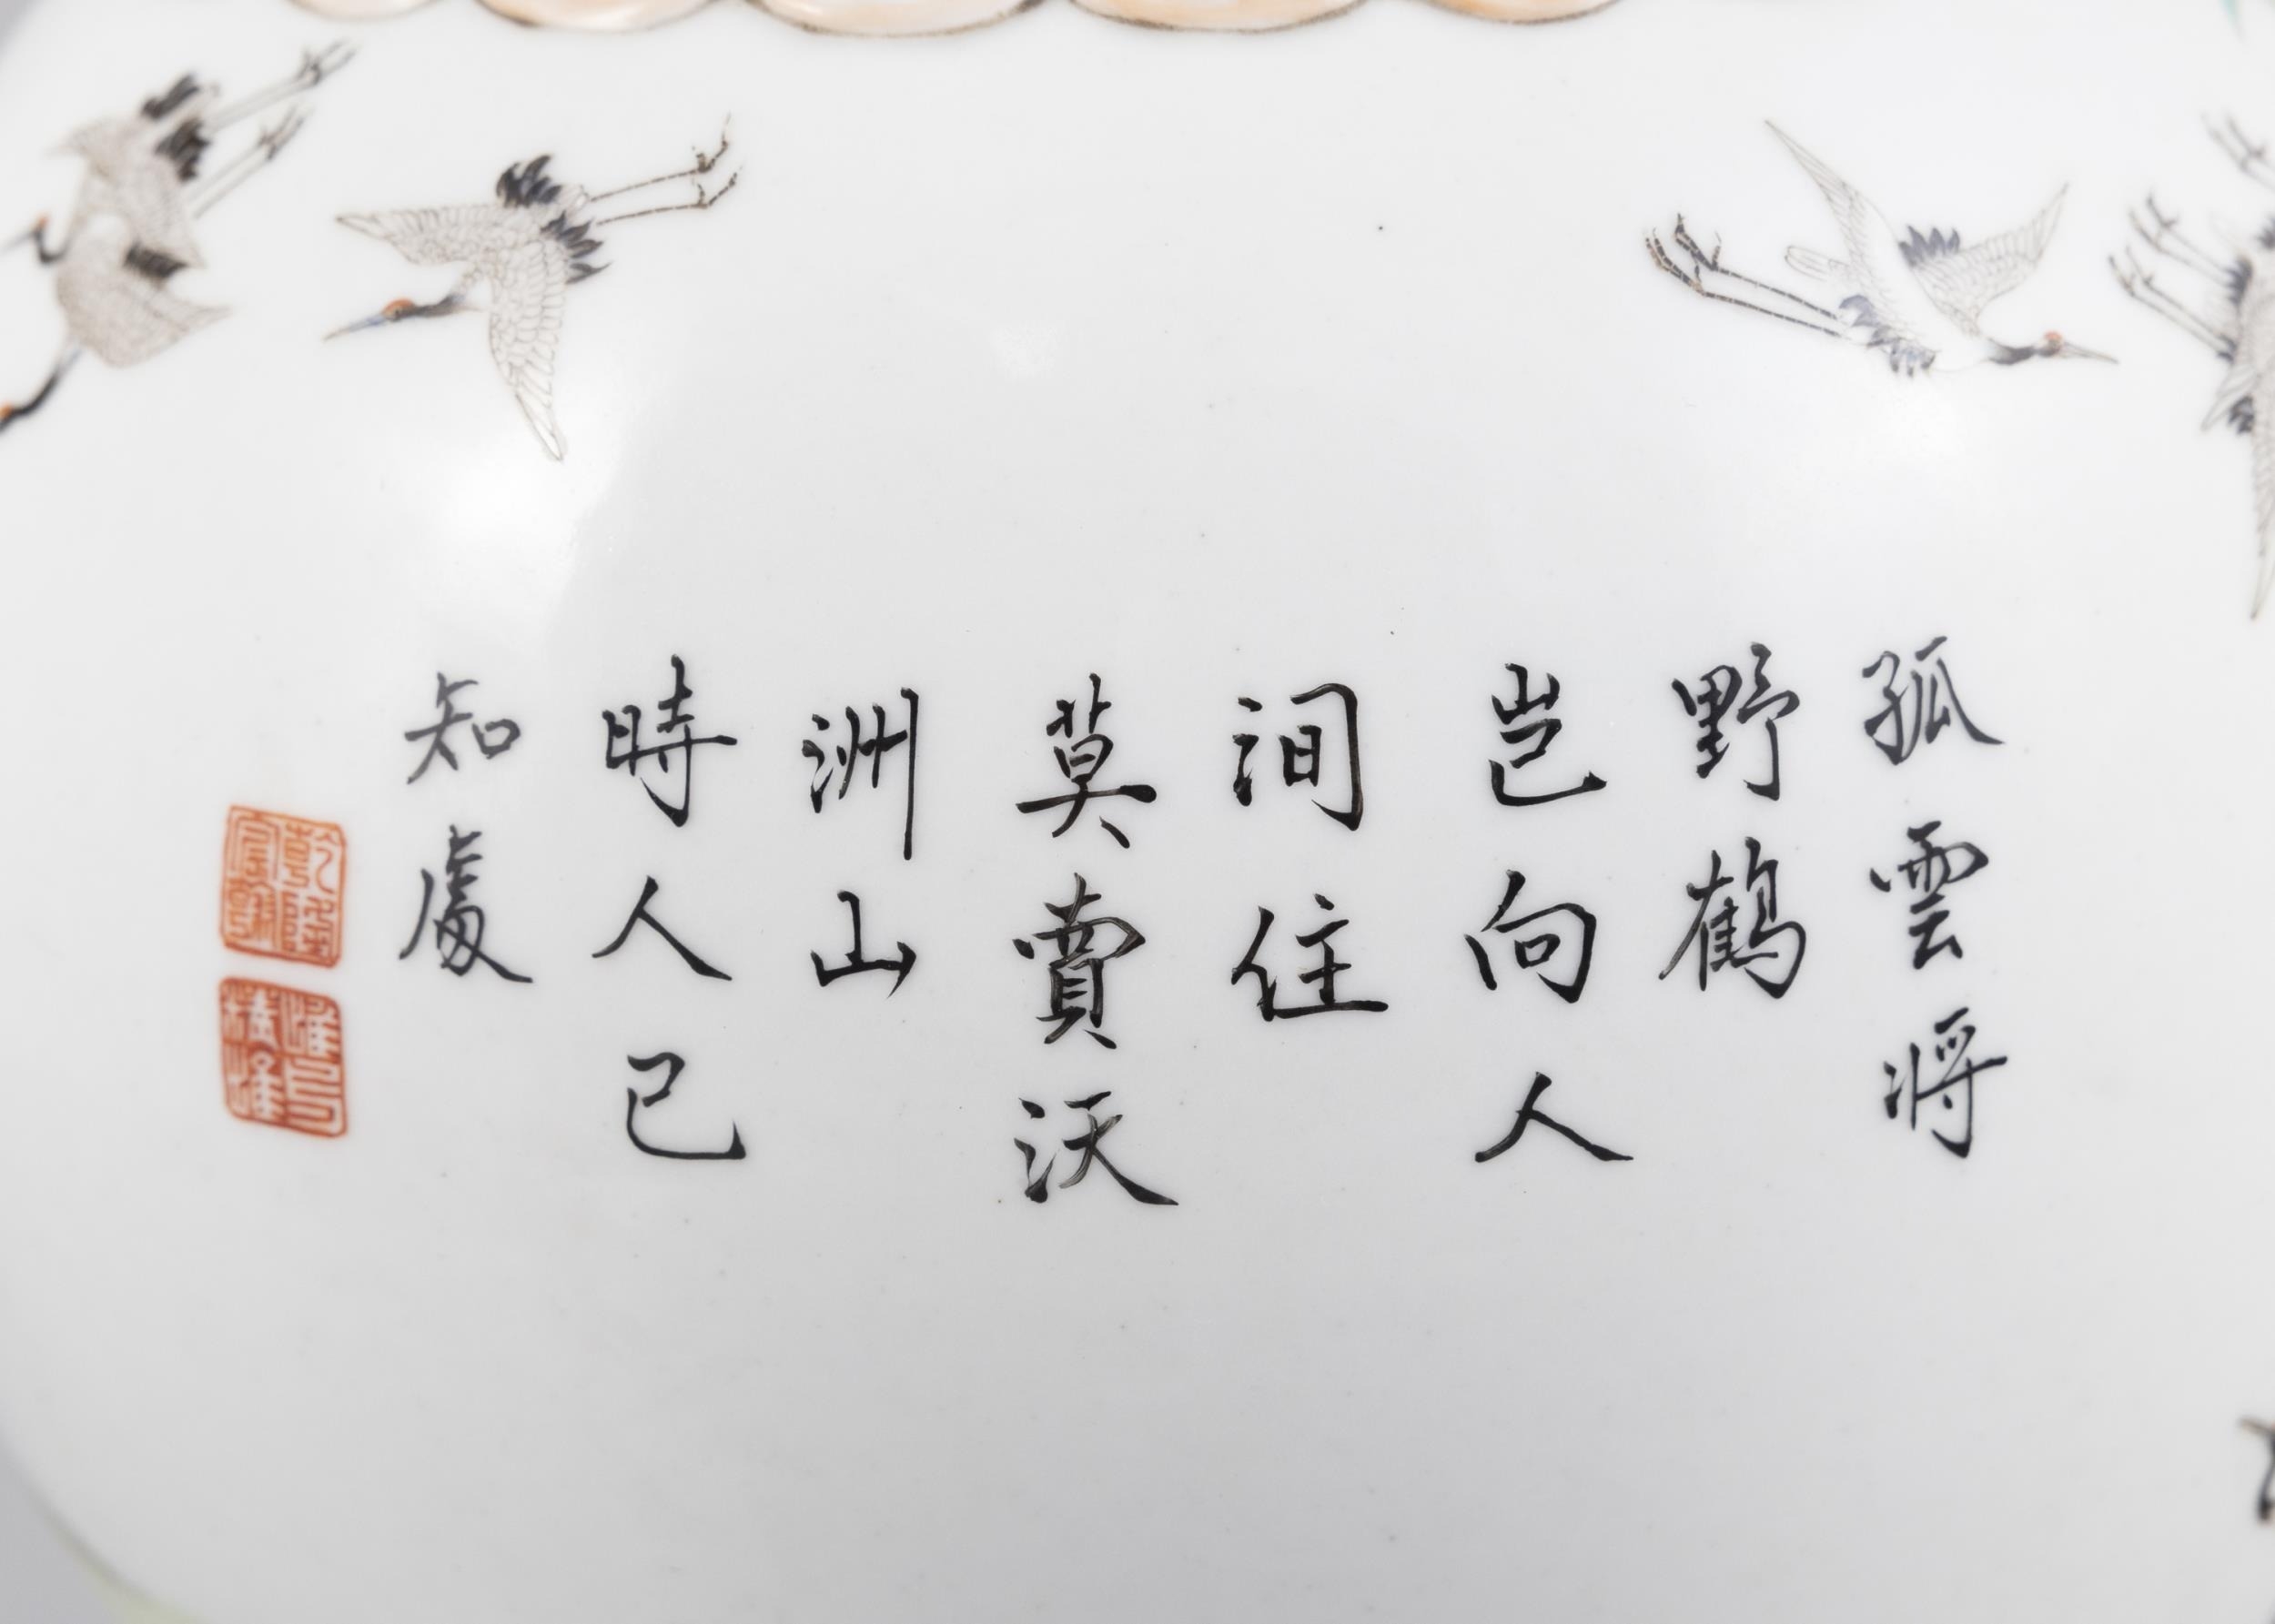 孤雲將
野鶴
豈向人
間住
莫賣沃
洲山
時人已
知處
乾隆
宸翰